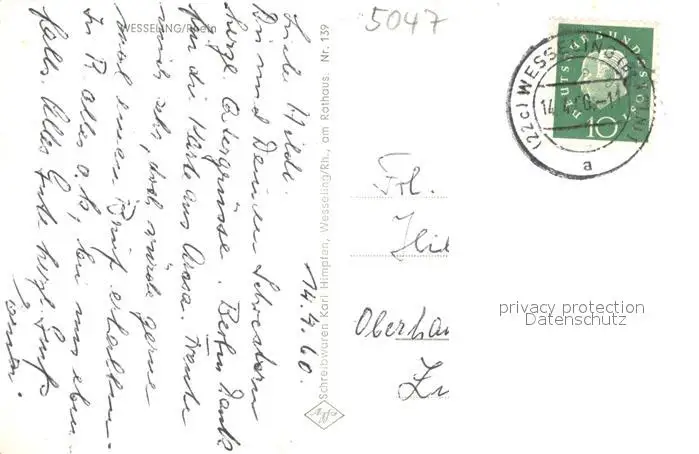 5047
WESSELING/Rhein
14.4.60.
Liebe Hilde.
Dir und Deinen Schwestern
herzl. Ostergrüsse. Besten Dank
für die Karte aus Arosa. Freute
mich sehr, doch würde gerne
mal einen Brief erhalten.
In R. alles o.k., bei uns eben-
falls. Alles Gute herzl. Gruß
Schreibwaren Karl Himpfen, Wesseling/Rh., am Rathaus. Nr. 139
DEUTSCHE BUNDESPOST
10
(22c) WESSELING (BZ KÖLN)
14.4.60.-11
a
Frl.
Hil
Oberhau
privacy protection
Datenschutz